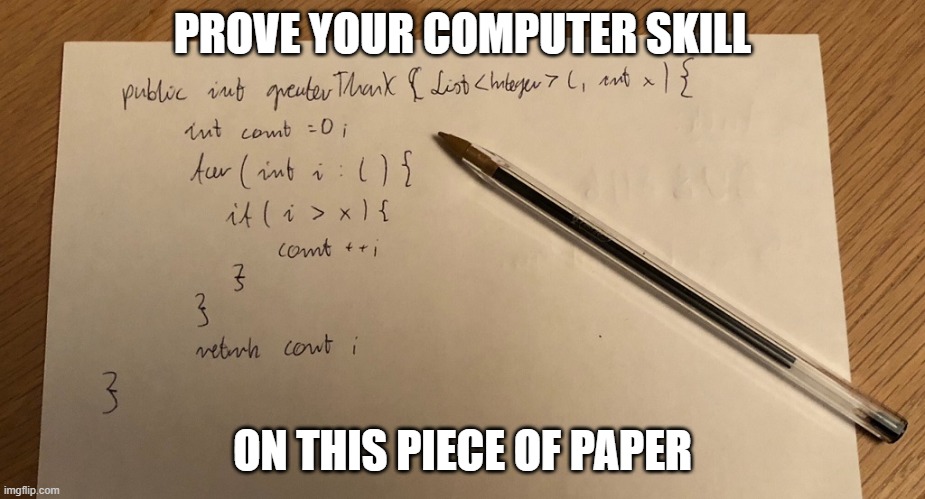 PROVE YOUR COMPUTER SKILL
public int greaterThanX ( List<Integer> l, int x ) {
int count = 0;
for ( int i : l ) {
if ( i > x ) {
count ++;
}
}
return count ;
}
ON THIS PIECE OF PAPER
imgflip.com